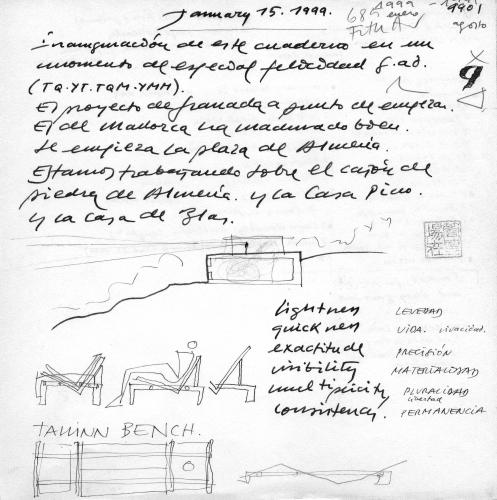 January 15. 1999.
68 A 1999 enero
Fifth Av
1901
agosto
9
Inauguración de este cuaderno en un
momento de especial felicidad g. ad.
(TQ.YT.TQM.YMM).
El proyecto de Granada a punto de empezar.
El de Mallorca ha madurado bien.
Se empieza la plaza de Almería.
Estamos trabajando sobre el cajón de
piedra de Almería. y la Casa Pino.
y la casa de Blas.
lightness LEVEDAD
quickness VIDA. vivacidad.
exactitude PRECISIÓN
visibility MATERIALIDAD
multiplicity PLURALIDAD
libertad
consistency. PERMANENCIA
TALLINN BENCH.